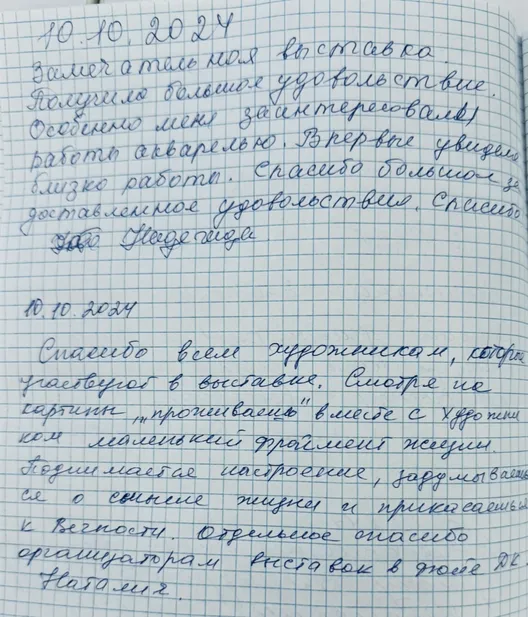 10.10.2024
Замечательная выставка.
Получила большое удовольствие.
Особенно меня заинтересовалы
работы акварелью. Впервые увидела
близко работы. Спасибо большое за
доставленное удовольствия. Спасибо
Надежда
10.10.2024
Спасибо всем художникам, которые
участвуют в выставке. Смотря на
картины, „проживаешь" вместе с художни
ком маленький фрагмент жизни.
Поднимается настроение, задумываешь
ся о смысле жизни и прикасаешься
к Вечности. Отдельное спасибо
организаторам выставок в фойе ДК.
Наталия.